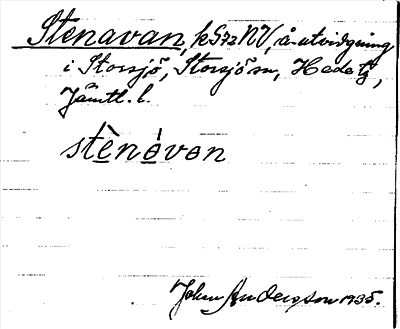 Stenavan, k S72 NV, å-utvidgning
i Storsjö, Storsjö sn, Hede tg,
Jämtl. l.
stènòvɑn
John Anderson 1935.